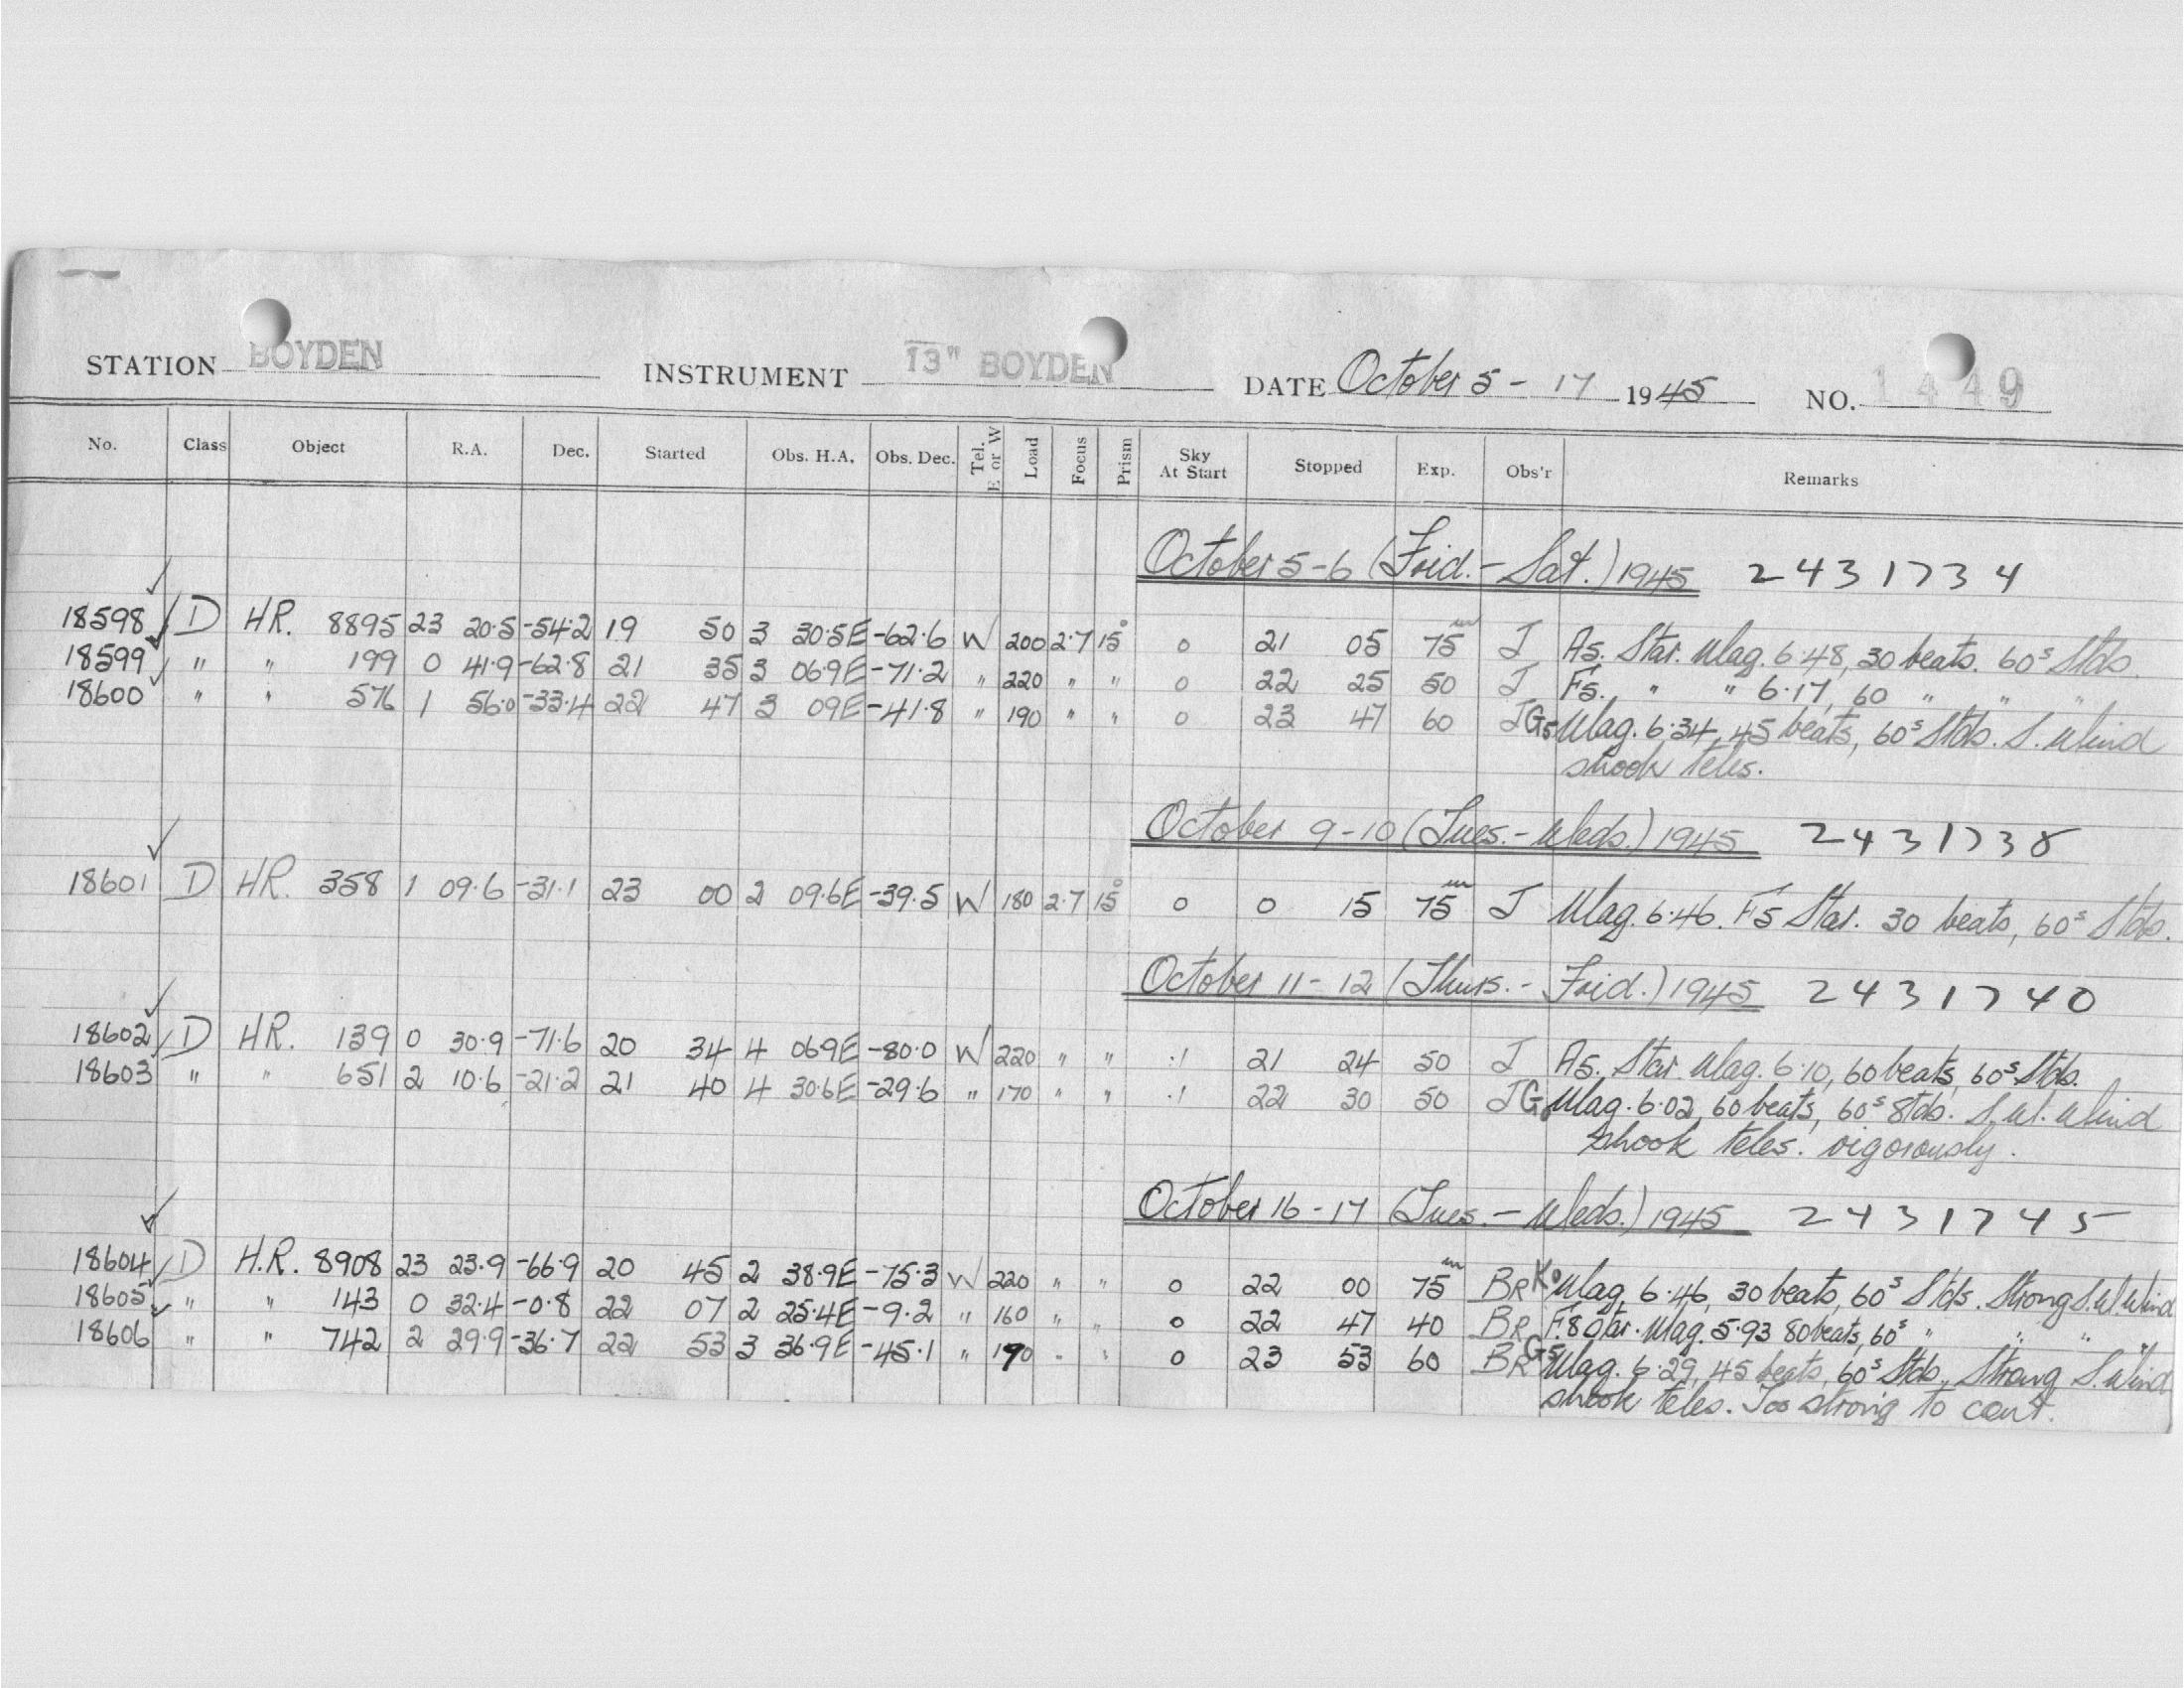 STATION BOYDEN INSTRUMENT 13" BOYDEN DATE October 5 - 17 1945 NO. 1449
No. Class Object R.A. Dec. Started Obs. H.A. Obs. Dec. Tel. E or W Load Focus Prism Sky At Start Stopped Exp. Obs'r Remarks
October 5-6 (Frid. - Sat.) 1945 2431734
18598 D HR. 8895 23 20.5 -54.2 19 50 3 30.5E -62.6 W 200 2.7 15° 0 21 05 75m J A5. Star. Mag. 6.48, 30 beats. 60s Stds.
18599 " " 199 0 41.9 -62.8 21 35 3 06.9E -71.2 " 220 " " 0 22 25 50 J F5. " " 6.17, 60 " " "
18600 " " 576 1 56.0 -33.4 22 47 3 09E -41.8 " 190 " " 0 23 47 60 J G5 Mag. 6.34, 45 beats, 60s Stds. S. Wind
shook teles.
October 9-10 (Tues. - Weds.) 1945 2431738
18601 D HR. 358 1 09.6 -31.1 23 00 2 09.6E -39.5 W 180 2.7 15° 0 0 15 75m J Mag. 6.46. F5 Star. 30 beats, 60s Stds.
October 11-12 (Thurs. - Frid.) 1945 2431740
18602 D HR. 139 0 30.9 -71.6 20 34 4 069E -80.0 W 220 " " .1 21 24 50 J A5. Star. Mag. 6.10, 60 beats, 60s Stds.
18603 " " 651 2 10.6 -21.2 21 40 4 30.6E -29.6 " 170 " " .1 22 30 50 J G Mag. 6.02, 60 beats, 60s Stds. S.W. Wind
shook teles. vigorously.
October 16-17 (Tues. - Weds.) 1945 2431745
18604 D H.R. 8908 23 23.9 -66.9 20 45 2 38.9E -75.3 W 220 " " 0 22 00 75m BR K0 Mag. 6.46, 30 beats, 60s Stds. Strong S.W. Wind
18605 " " 143 0 32.4 -0.8 22 07 2 25.4E -9.2 " 160 " " 0 22 47 40 BR F8 Star. Mag. 5.93 80 beats, 60s " " " "
18606 " " 742 2 29.9 -36.7 22 53 3 36.9E -45.1 " 190 " " 0 23 53 60 BR G5 Mag. 6.29, 45 beats, 60s Stds. Strong S. Wind
shook teles. Too strong to cont.